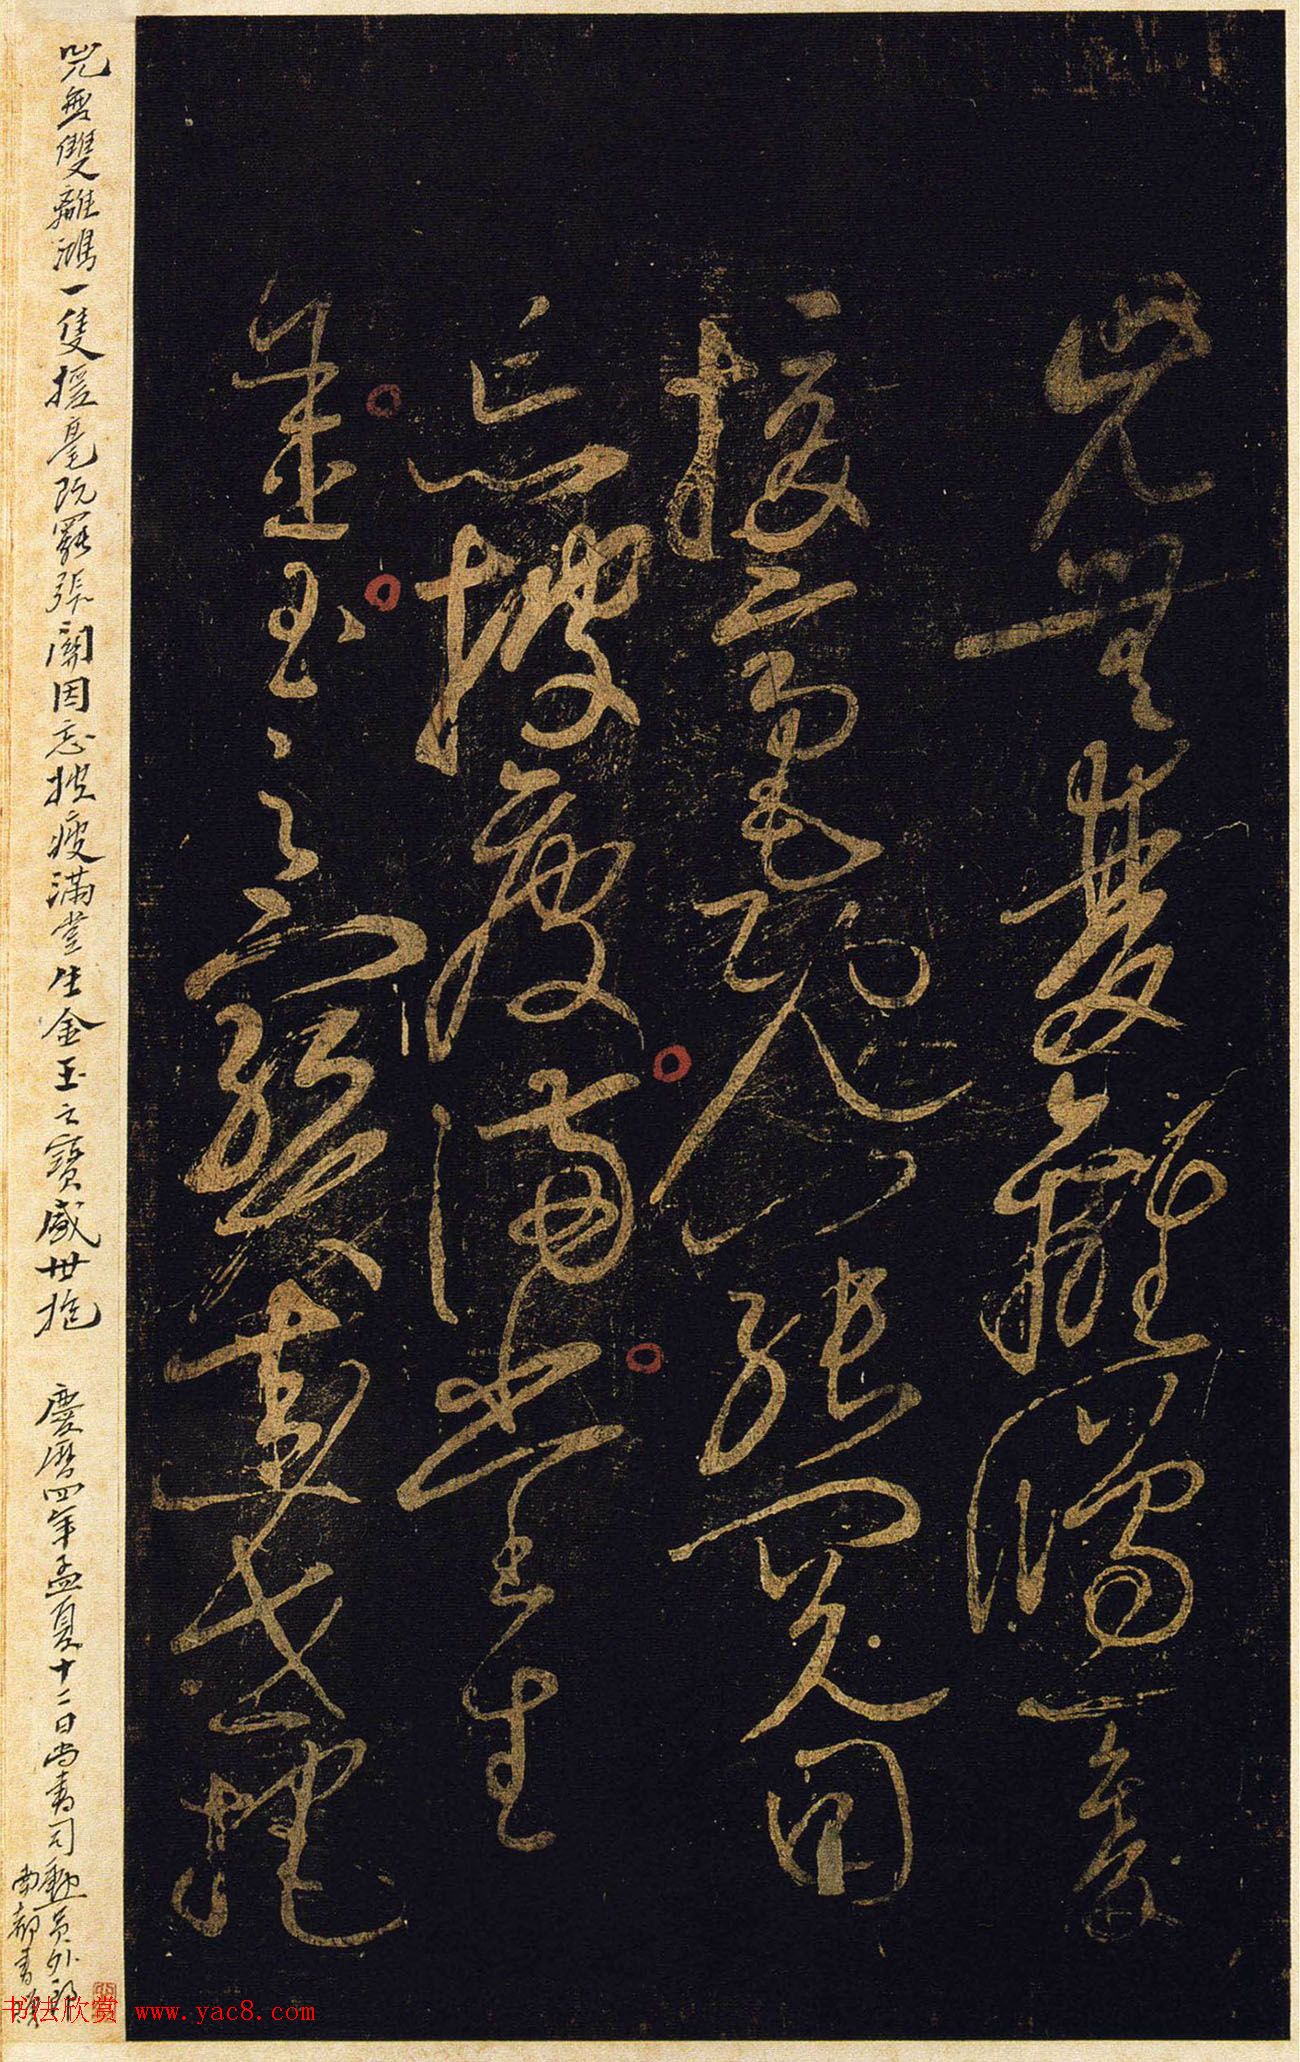 咒無雙離鴻一隻
援毫既罷張闕因
忘披瘦滿堂生
金玉之寶盛世抱
咒無雙離鴻一隻援毫既罷張闕因忘披瘦滿堂生金玉之寶盛世抱 慶曆四年孟夏十二日尚書司勳員外郎
南都書
书法欣赏 www.yac8.com